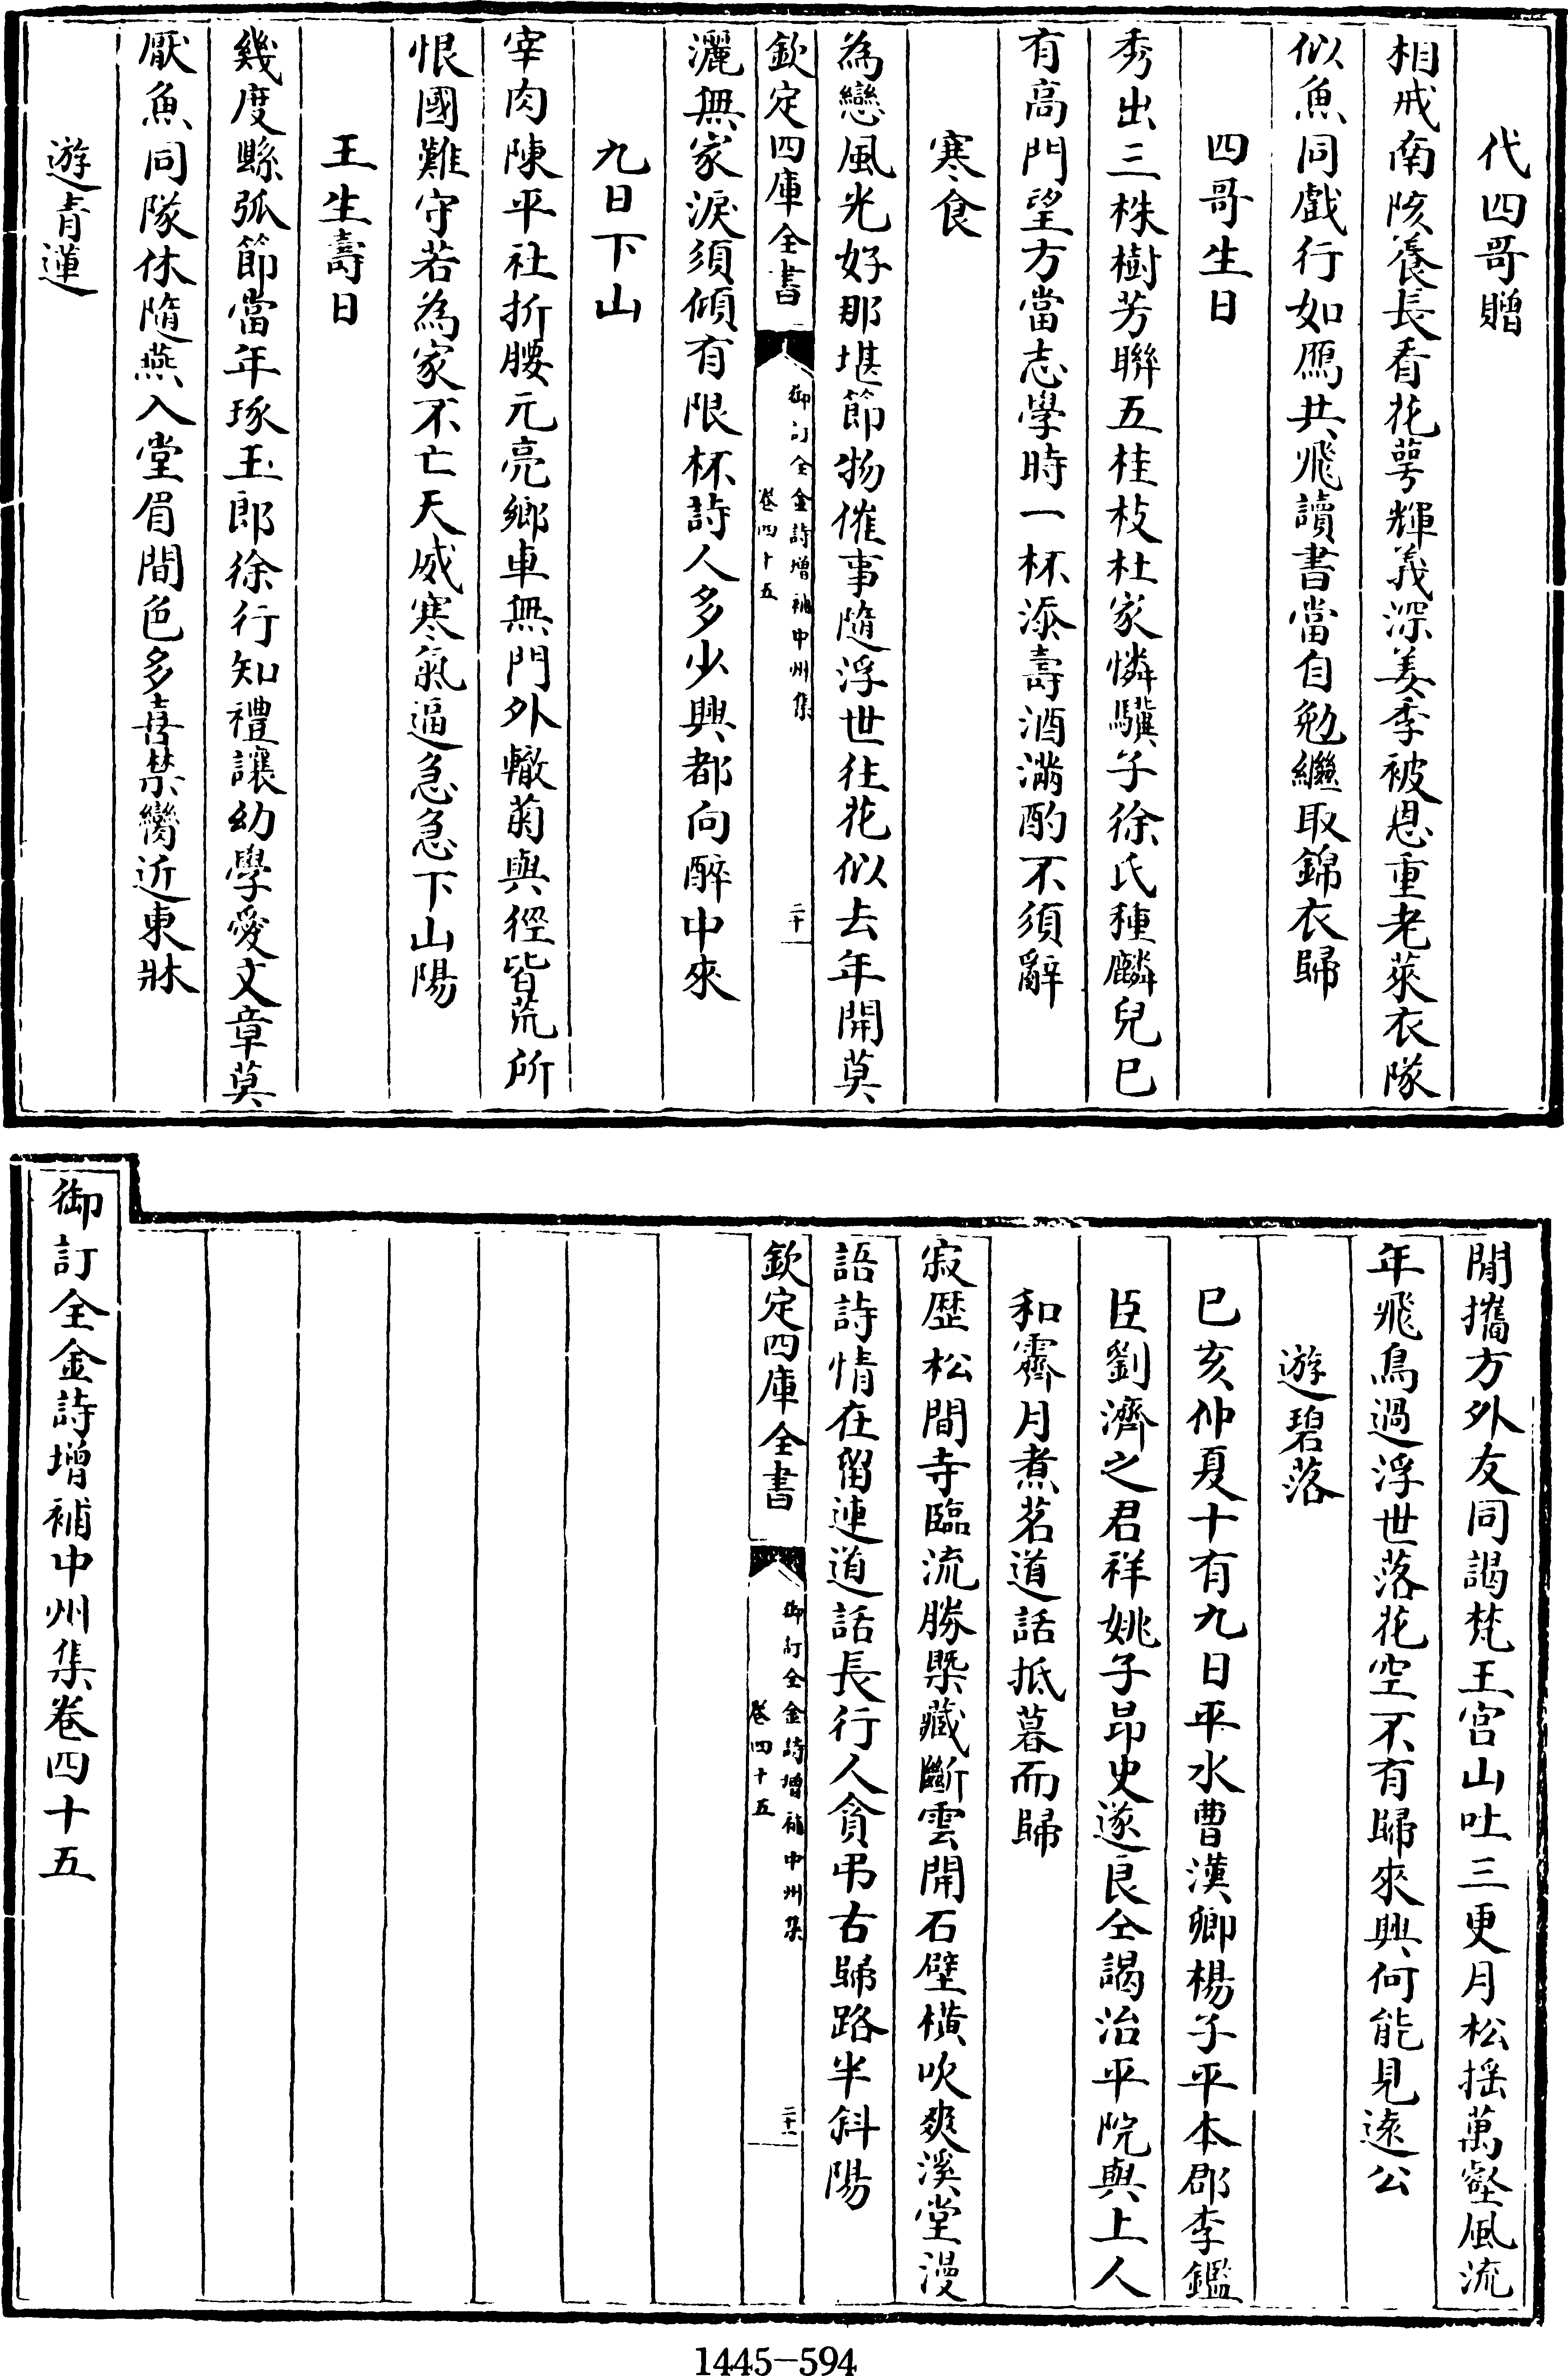 代四哥贈
相戒南陔養長看花萼輝義深姜季被恩重老萊衣隊
似魚同戲行如鴈共飛讀書當自勉繼取錦衣歸
四哥生日
秀出三株樹芳聯五桂枝杜家憐驥子徐氏種麟兒已
有高門望方當志學時一杯添壽酒滿酌不須辭
寒食
為戀風光好那堪節物催事隨浮世往花似去年開莫
欽定四庫全書
御訂全金詩增補中州集
卷四十五
二十
灑無家淚須傾有限杯詩人多少興都向醉中來
九日下山
宰肉陳平社折腰元亮鄉車無門外轍菊與徑皆荒所
恨國難守若為家不亡天威寒氣逼急急下山陽
王生壽日
幾度縣弧節當年琢玉郎徐行知禮讓幼學愛文章莫
厭魚同隊休隨燕入堂眉間色多喜禁臠近東牀
遊青蓮
閒攜方外友同謁梵王宮山吐三更月松摇萬壑風流
年飛鳥過浮世落花空不有歸來興何能見逺公
遊碧落
巳亥仲夏十有九日平水曹漢卿楊子平本郡李鑑
臣劉濟之君祥姚子昂史遂良仝謁治平院與上人
和霽月煮茗道話抵暮而歸
寂歴松間寺臨流勝槩藏斷雲開石壁横吹爽溪堂漫
語詩情在留連道話長行人貪弔古歸路半斜陽
欽定四庫全書
御訂全金詩增補中州集
卷四十五
二十一
御訂全金詩增補中州集卷四十五
1445-594